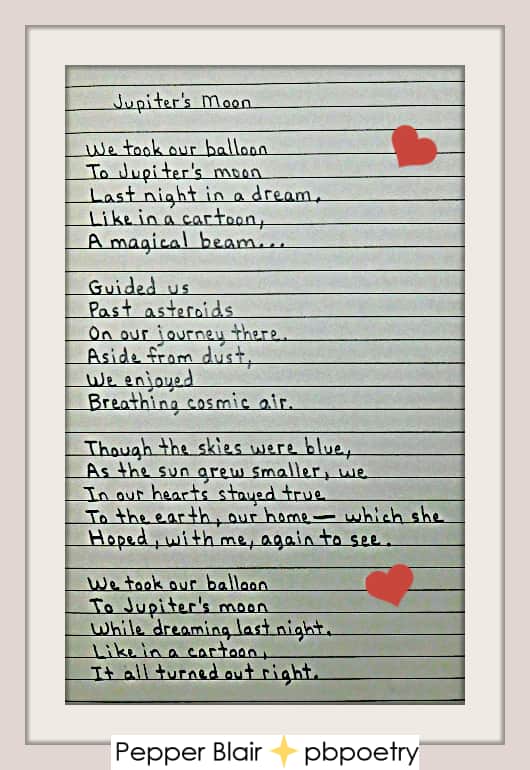 Jupiter's Moon
We took our balloon
To Jupiter's moon
Last night in a dream,
Like in a cartoon,
A magical beam...
Guided us
Past asteroids
On our journey there.
Aside from dust,
We enjoyed
Breathing cosmic air.
Though the skies were blue,
As the sun grew smaller, we
In our hearts stayed true
To the earth, our home — which she
Hoped, with me, again to see.
We took our balloon
To Jupiter's moon
While dreaming last night.
Like in a cartoon,
It all turned out right.
Pepper Blair pbpoetry